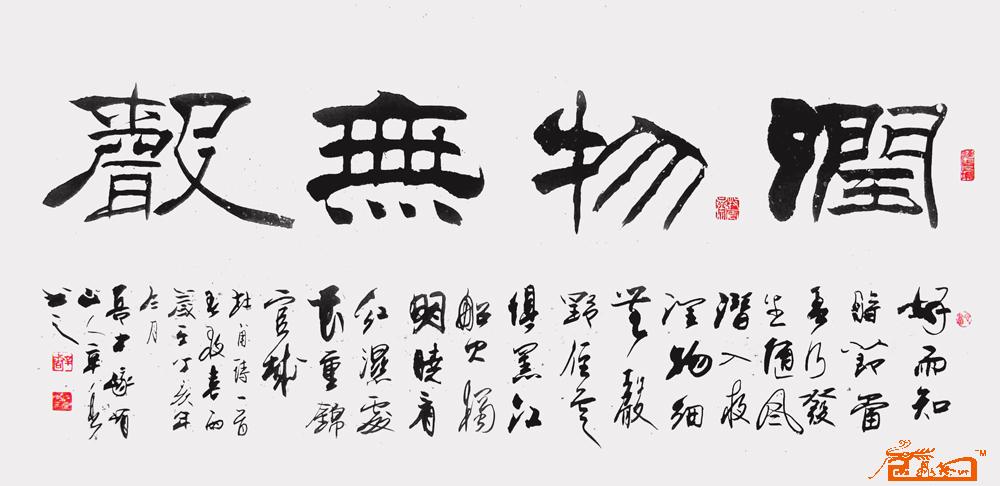 潤物無聲
好雨知
時節當
春乃發
生隨風
潛入夜
潤物細
無聲
野徑雲
俱黑江
船火獨
明曉看
紅濕處
花重錦
官城
杜甫詩一首
春夜喜雨
丁亥年
月
山人
書之